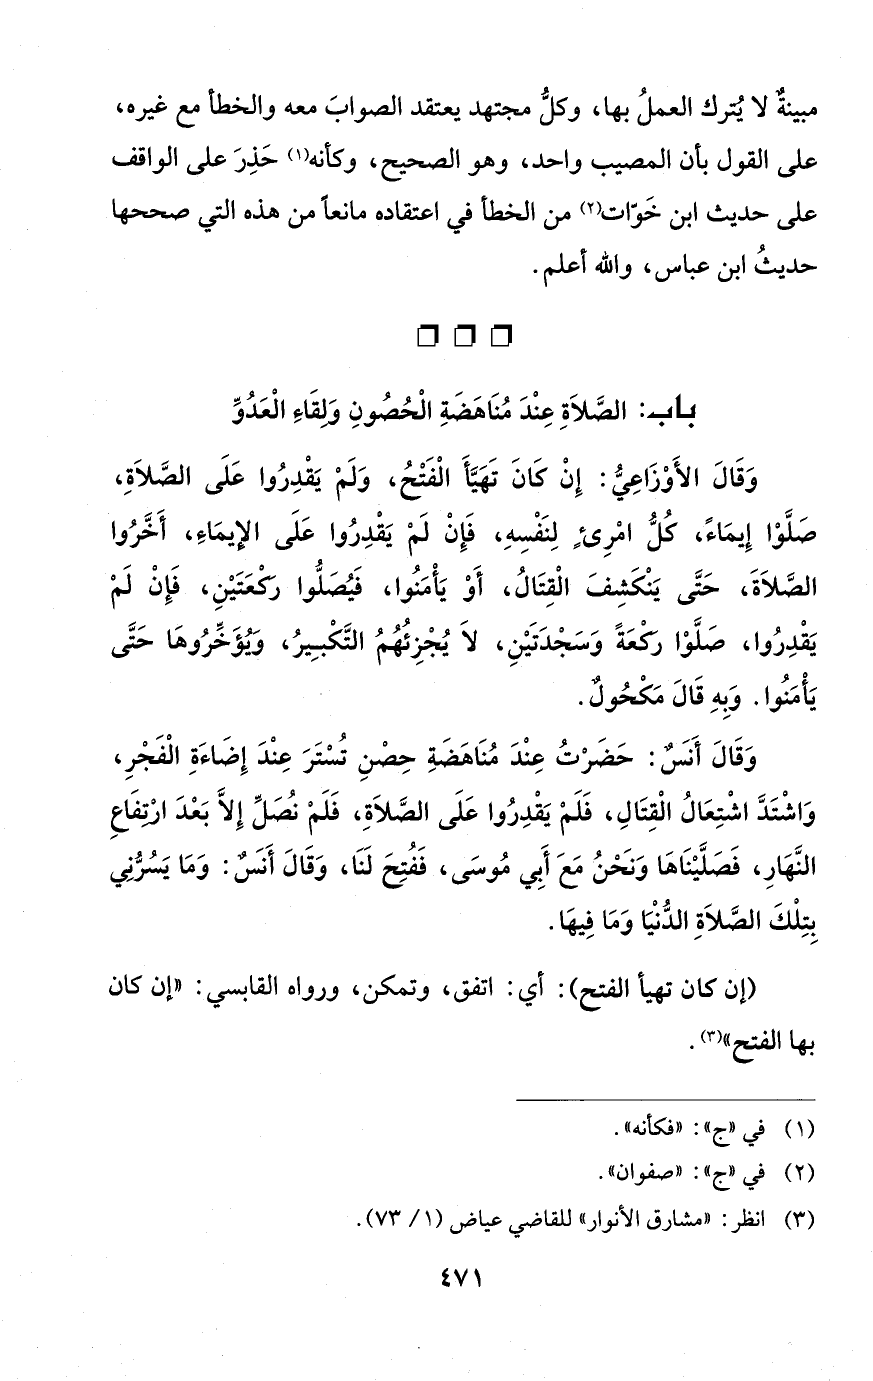 مبينةٌ لا يُترك العملُ بها، وكلُّ مجتهد يعتقد الصوابَ معه والخطأ مع غيره،
على القول بأن المصيب واحد، وهو الصحيح، وكأنه(١) حَذِرَ على الواقف
على حديث ابن خَوّات(٢) من الخطأ في اعتقاده مانعاً من هذه التي صححها
حديثُ ابن عباس، والله أعلم.
❒ ❒ ❒
باب: الصَّلاَةِ عِنْدَ مُنَاهَضَةِ الْحُصُونِ وَلِقَاءِ الْعَدُوِّ
وَقَالَ الأَوْزَاعِيُّ: إِنْ كَانَ تَهَيَّأَ الْفَتْحُ، وَلَمْ يَقْدِرُوا عَلَى الصَّلاَةِ،
صَلَّوْا إِيمَاءً، كُلُّ امْرِئٍ لِنَفْسِهِ، فَإِنْ لَمْ يَقْدِرُوا عَلَى الإِيمَاءِ، أَخَّرُوا
الصَّلاَةَ، حَتَّى يَنْكَشِفَ الْقِتَالُ، أَوْ يَأْمَنُوا، فَيُصَلُّوا رَكْعَتَيْنِ، فَإِنْ لَمْ
يَقْدِرُوا، صَلَّوْا رَكْعَةً وَسَجْدَتَيْنِ، لاَ يُجْزِئُهُمُ التَّكْبِيرُ، وَيُؤَخِّرُوهَا حَتَّى
يَأْمَنُوا. وَبِهِ قَالَ مَكْحُولٌ.
وَقَالَ أَنَسٌ: حَضَرْتُ عِنْدَ مُنَاهَضَةِ حِصْنِ تُسْتَرَ عِنْدَ إِضَاءَةِ الْفَجْرِ،
وَاشْتَدَّ اشْتِعَالُ الْقِتَالِ، فَلَمْ يَقْدِرُوا عَلَى الصَّلاَةِ، فَلَمْ نُصَلِّ إِلاَّ بَعْدَ ارْتِفَاعِ
النَّهَارِ، فَصَلَّيْنَاهَا وَنَحْنُ مَعَ أَبِي مُوسَى، فَفُتِحَ لَنَا، وَقَالَ أَنَسٌ: وَمَا يَسُرُّنِي
بِتِلْكَ الصَّلاَةِ الدُّنْيَا وَمَا فِيهَا.
(إن كان تهيأ الفتح): أي: اتفق، وتمكن، ورواه القابسي: «إن كان
بها الفتح»(٣).
(١) في «ج»: «فكأنه».
(٢) في «ج»: «صفوان».
(٣) انظر: «مشارق الأنوار» للقاضي عياض (١/ ٧٣).
٤٧١